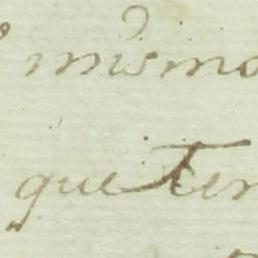 mismo
que ten